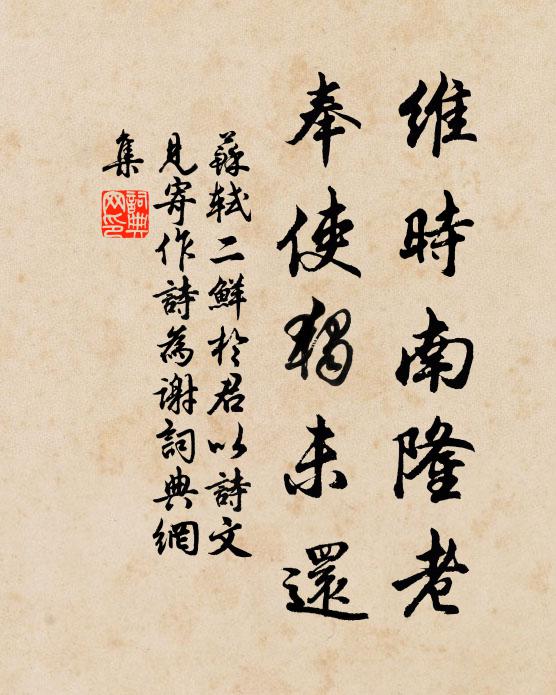 維時南隆老
奉使獨未還
蘇軾二鮮於君以詩文
見寄作詩為謝詞典網
集
詞典
网印